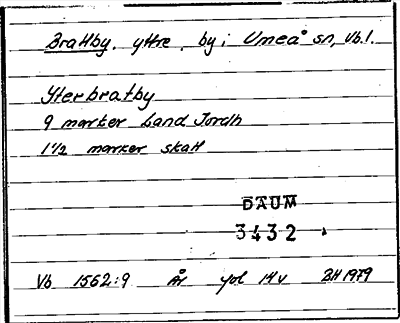 Brattby, yttre, by i Umeå sn, Vb.l.
Yterbratby
9 marker Land Jordh
1½ marker skatt
DAUM
3432
Vb 1562:9 År fol 14v BH 1979